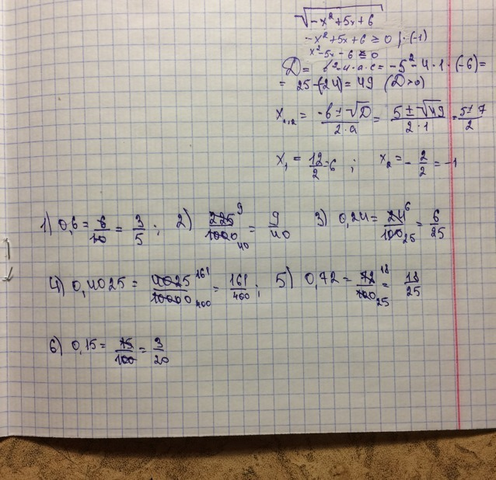 √-x²+5x+6
-x²+5x+6 ≥ 0 /·(-1)
x²-5x-6 ≤ 0
D = b²-4·a·c = -5²-4·1·(-6) =
= 25-(24) = 49 (D>0)
x₁,₂ = -b±√D/2·a = 5±√49/2·1 = 5±7/2
x₁ = 12/2 = 6 ; x₂ = -2/2 = -1
1) 0,6 = 6/10 = 3/5 ; 2) 225/1000 9/40 = 9/40 3) 0,24 = 24/100 6/25 = 6/25
4) 0,4025 = 4025/10000 161/400 = 161/400 ; 5) 0,72 = 72/100 18/25 = 18/25
6) 0,15 = 15/100 = 3/20